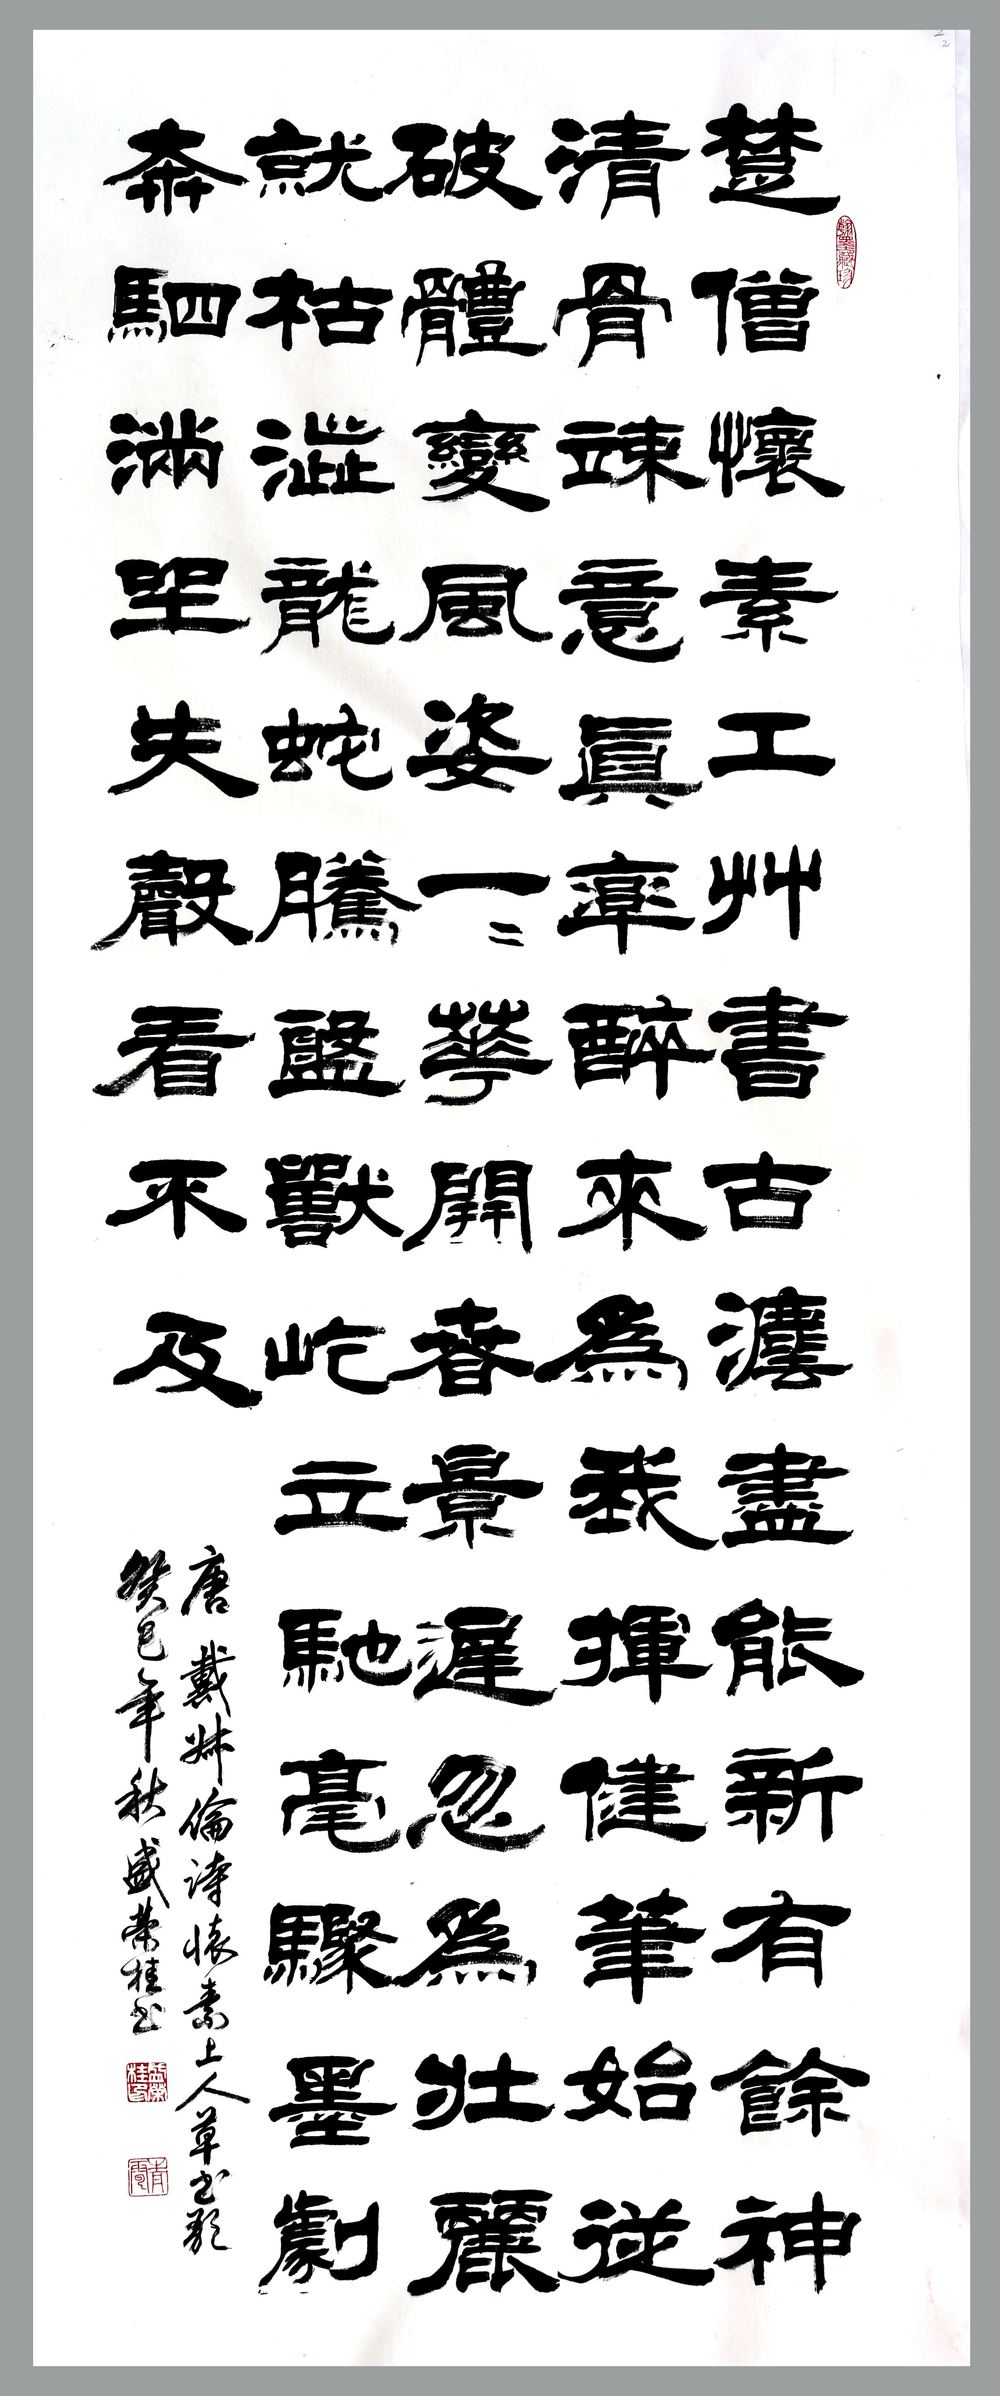 楚僧懷素工艸書古灋盡能新有餘神
清骨竦意真率醉來為我揮健筆始從
破體變風姿一〻華開春景遲忽為壯麗
就枯澀龍蛇騰盤獸屹立馳毫驟墨劇
奔駟滿坐失聲看不及
唐戴叔倫詩懷素上人草書歌
癸巳年秋盛榮桂書